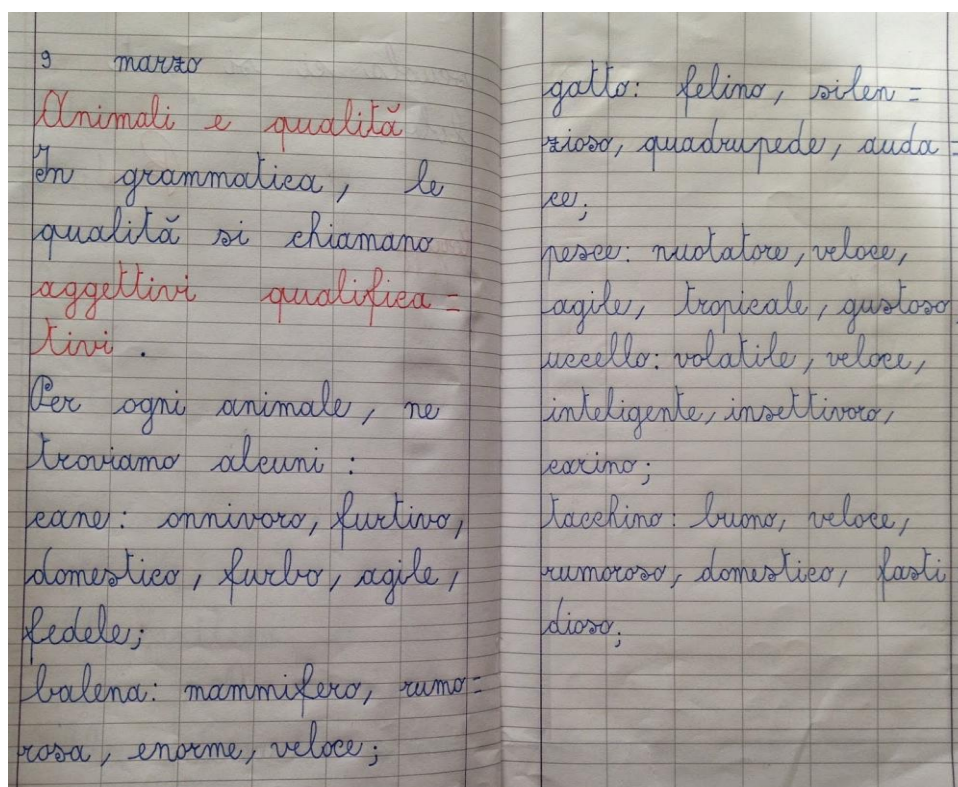 9 marzo
Animali e qualità
In grammatica, le
qualità si chiamano
aggettivi qualifica=
tivi.
Per ogni animale, ne
troviamo alcuni :
cane: onnivoro, furtivo,
domestico, furbo, agile,
fedele;
balena: mammifero, rumo=
rosa, enorme, veloce;
gatto: felino, silen=
zioso, quadrupede, auda=
ce;
pesce: nuotatore, veloce,
agile, tropicale, gustoso.
uccello: volatile, veloce,
inteligente, insettivoro,
carino;
tacchino: buono, veloce,
rumoroso, domestico, fasti
dioso;